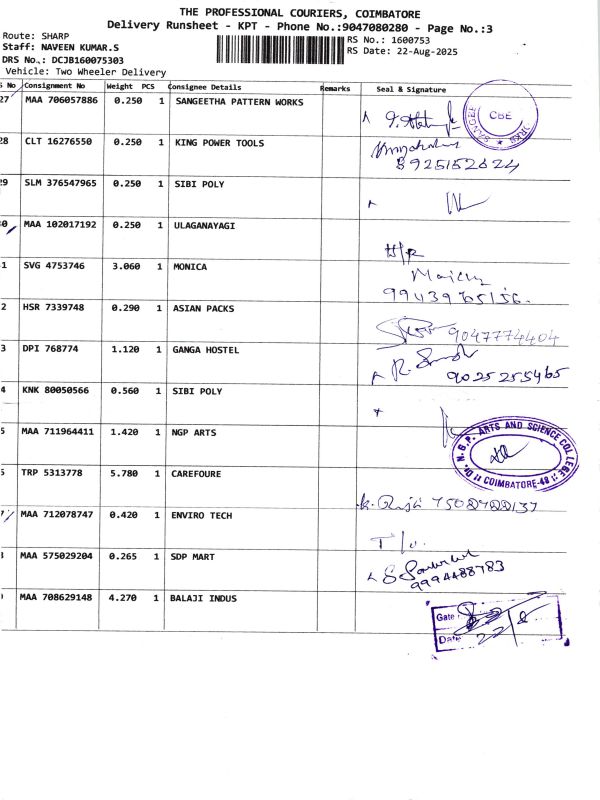 THE PROFESSIONAL COURIERS, COIMBATORE
Delivery Runsheet - KPT - Phone No.:9047080280 - Page No.:3
Route: SHARP
Staff: NAVEEN KUMAR.S
DRS No.: DCJB160075303
Vehicle: Two Wheeler Delivery
RS No.: 1600753
RS Date: 22-Aug-2025
S No Consignment No Weight PCS Consignee Details Remarks Seal & Signature
27 MAA 706057886 0.250 1 SANGEETHA PATTERN WORKS
CBE
28 CLT 16276550 0.250 1 KING POWER TOOLS
8925152624
29 SLM 376547965 0.250 1 SIBI POLY
0 MAA 102017192 0.250 1 ULAGANAYAGI
H/R
1 SVG 4753746 3.060 1 MONICA
2 HSR 7339748 0.290 1 ASIAN PACKS
9047774404
3 DPI 768774 1.120 1 GANGA HOSTEL
9025255465
4 KNK 80050566 0.560 1 SIBI POLY
5 MAA 711964411 1.420 1 NGP ARTS
Dr. N.G.P. ARTS AND SCIENCE COLLEGE
COIMBATORE-48
TRP 5313778 5.780 1 CAREFOURE
7 MAA 712078747 0.420 1 ENVIRO TECH
MAA 575029204 0.265 1 SDP MART
9994488783
MAA 708629148 4.270 1 BALAJI INDUS
Gate
Date 22/8